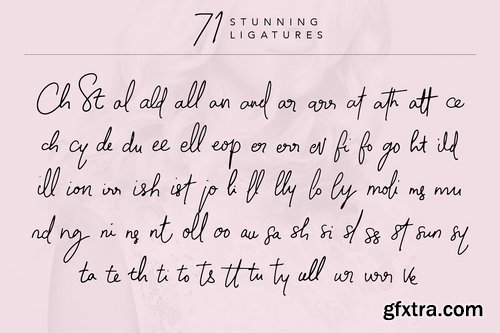 71 STUNNING
LIGATURES
Ch St al ald all an and ar arr at ath att ce
ch cy de du ee ell eop er err ev fi fo go ht ild
ill ion irr ish ist jo li ll lly lo ly moli ms mu
nd ng ni ns nt oll oo ou sa sh si sl ss st sun sy
ta te th ti to ts tt tu ty ull ur urr ve
gfxtra.com